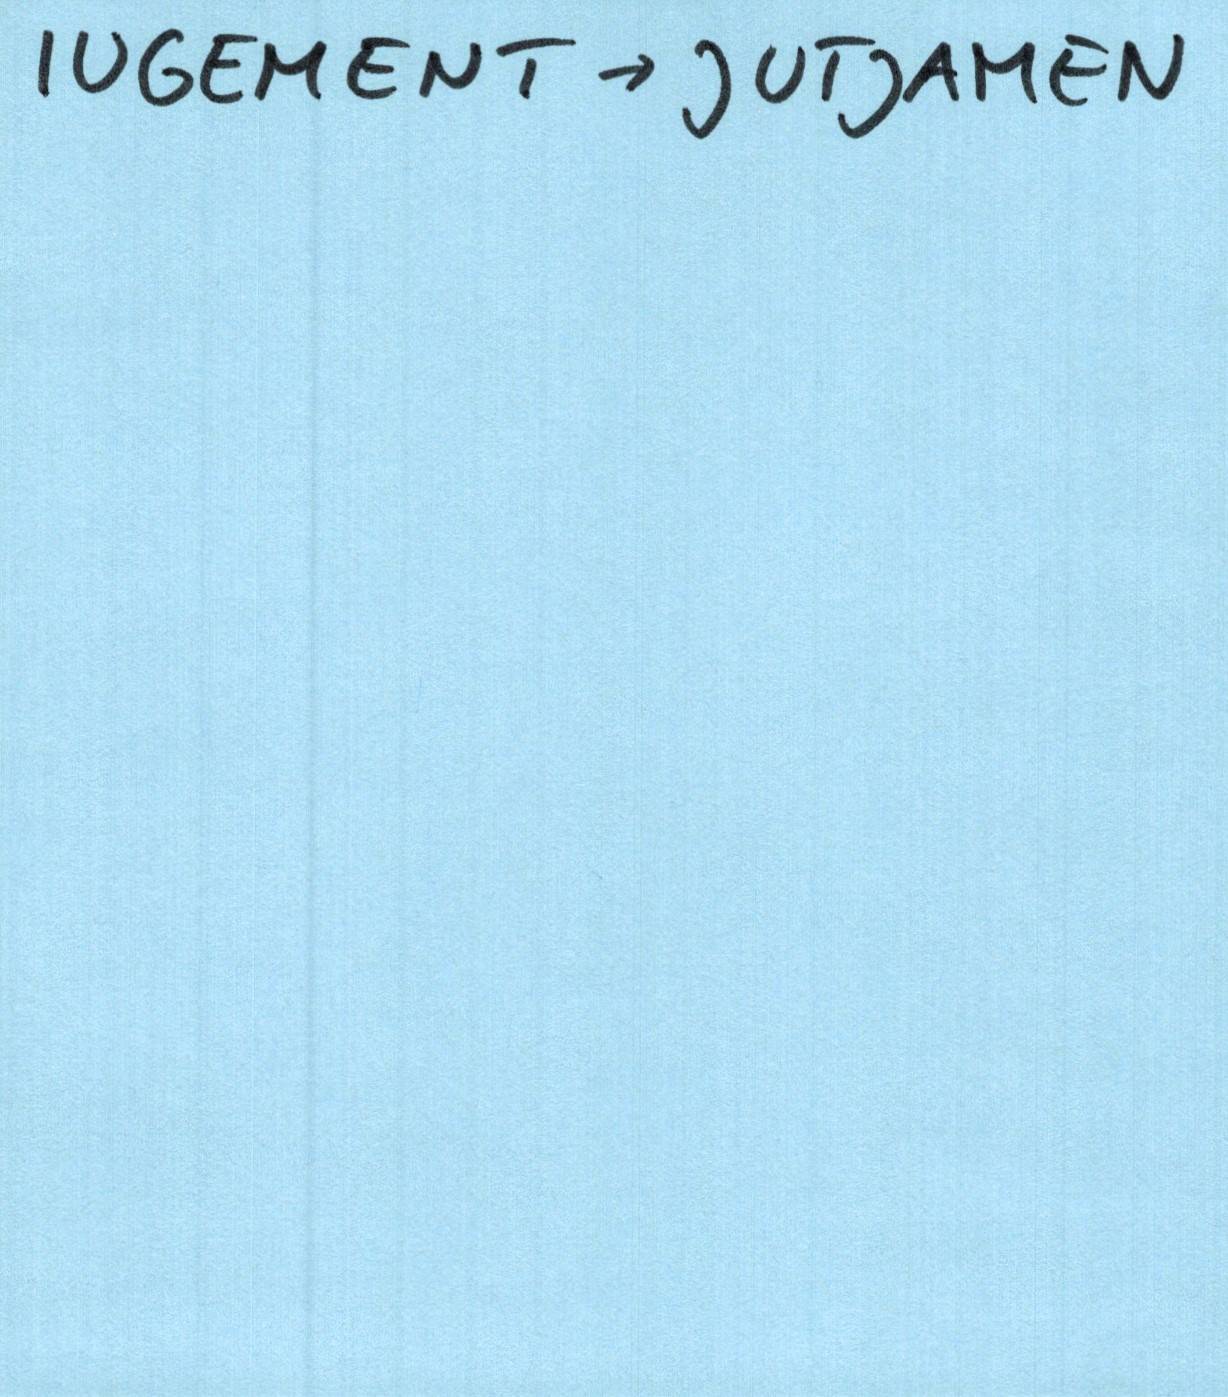 IUGEMENT → JUTJAMEN